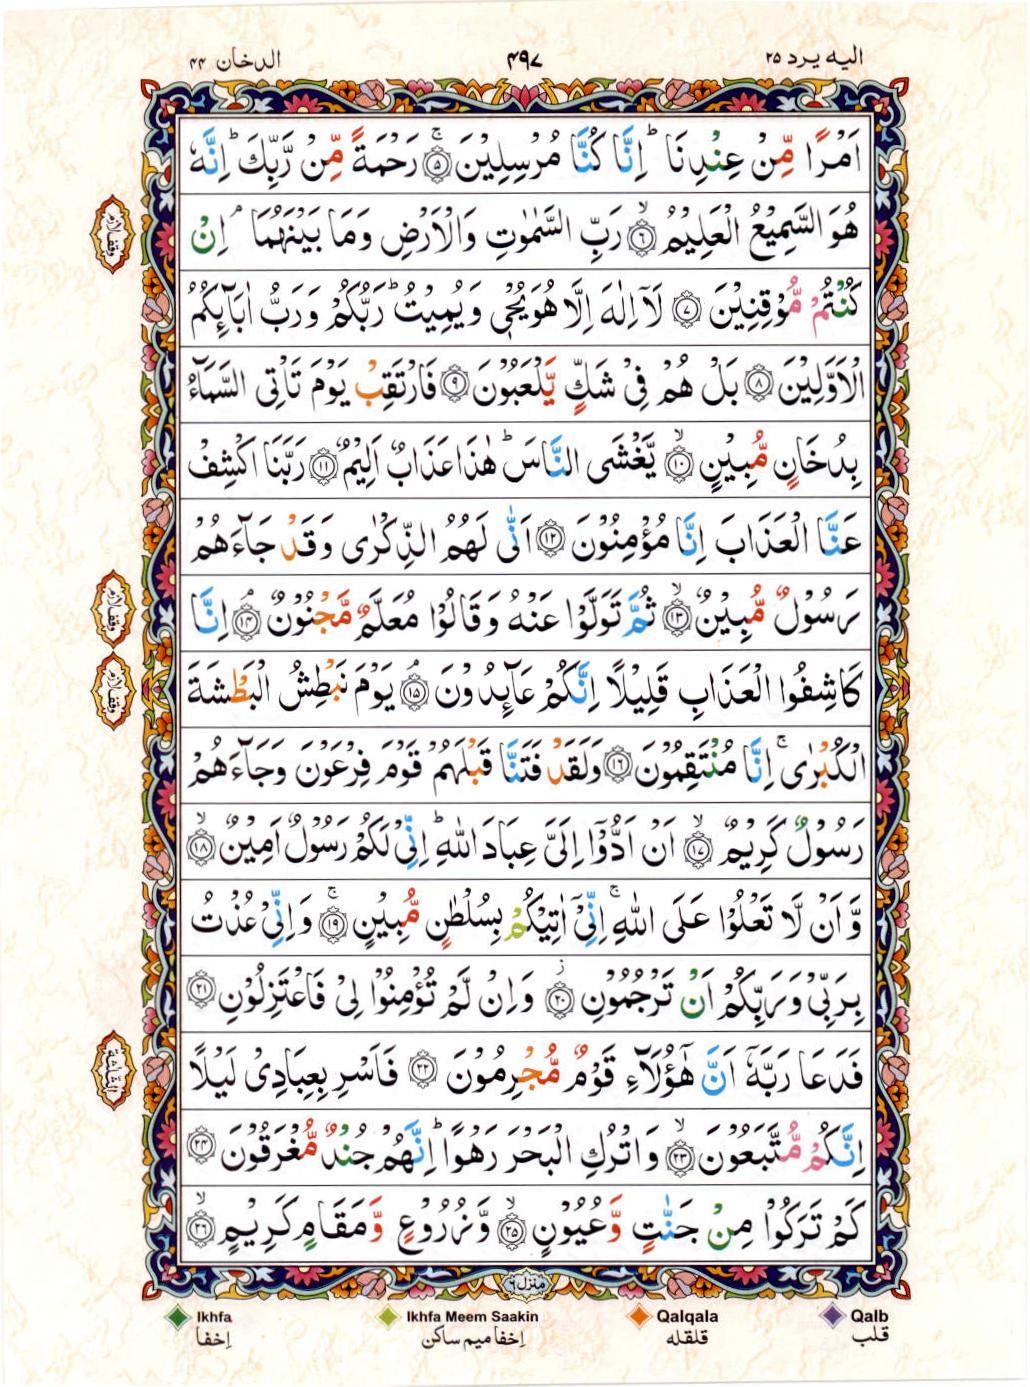 الیه یرد ۲۵
۴۹۷
الدخان ۴۴
اَمْرًا مِّنْ عِنْدِنَا ؕ اِنَّا كُنَّا مُرْسِلِیْنَ ۚ﴿۵﴾ رَحْمَةً مِّنْ رَّبِّكَ ؕ اِنَّهٗ
هُوَ السَّمِیْعُ الْعَلِیْمُ ۙ﴿۶﴾ رَبِّ السَّمٰوٰتِ وَالْاَرْضِ وَمَا بَیْنَهُمَا ۘ اِنْ
وقف لازم
كُنْتُمْ مُّوْقِنِیْنَ ﴿۷﴾ لَاۤ اِلٰهَ اِلَّا هُوَ یُحْیٖ وَیُمِیْتُ ؕ رَبُّكُمْ وَرَبُّ اٰبَآئِكُمُ
الْاَوَّلِیْنَ ﴿۸﴾ بَلْ هُمْ فِیْ شَكٍّ یَّلْعَبُوْنَ ﴿۹﴾ فَارْتَقِبْ یَوْمَ تَاْتِی السَّمَآءُ
بِدُخَانٍ مُّبِیْنٍ ۙ﴿۱۰﴾ یَّغْشَی النَّاسَ ؕ هٰذَا عَذَابٌ اَلِیْمٌ ﴿۱۱﴾ رَبَّنَا اكْشِفْ
عَنَّا الْعَذَابَ اِنَّا مُؤْمِنُوْنَ ﴿۱۲﴾ اَنّٰی لَهُمُ الذِّكْرٰی وَقَدْ جَآءَهُمْ
رَسُوْلٌ مُّبِیْنٌ ۙ﴿۱۳﴾ ثُمَّ تَوَلَّوْا عَنْهُ وَقَالُوْا مُعَلَّمٌ مَّجْنُوْنٌ ۘ﴿۱۴﴾ اِنَّا
وقف لازم
كَاشِفُوا الْعَذَابِ قَلِیْلًا اِنَّكُمْ عَآئِدُوْنَ ۘ﴿۱۵﴾ یَوْمَ نَبْطِشُ الْبَطْشَةَ
وقف لازم
الْكُبْرٰی ۚ اِنَّا مُنْتَقِمُوْنَ ﴿۱۶﴾ وَلَقَدْ فَتَنَّا قَبْلَهُمْ قَوْمَ فِرْعَوْنَ وَجَآءَهُمْ
رَسُوْلٌ كَرِیْمٌ ۙ﴿۱۷﴾ اَنْ اَدُّوْۤا اِلَیَّ عِبَادَ اللّٰهِ ؕ اِنِّیْ لَكُمْ رَسُوْلٌ اَمِیْنٌ ۙ﴿۱۸﴾
وَّاَنْ لَّا تَعْلُوْا عَلَی اللّٰهِ ۚ اِنِّیْۤ اٰتِیْكُمْ بِسُلْطٰنٍ مُّبِیْنٍ ۚ﴿۱۹﴾ وَاِنِّیْ عُذْتُ
بِرَبِّیْ وَرَبِّكُمْ اَنْ تَرْجُمُوْنِ ؗ﴿۲۰﴾ وَاِنْ لَّمْ تُؤْمِنُوْا لِیْ فَاعْتَزِلُوْنِ ﴿۲۱﴾
فَدَعَا رَبَّهٗۤ اَنَّ هٰۤؤُلَآءِ قَوْمٌ مُّجْرِمُوْنَ ﴿۲۲﴾ فَاَسْرِ بِعِبَادِیْ لَیْلًا
الثلثة
اِنَّكُمْ مُّتَّبَعُوْنَ ۙ﴿۲۳﴾ وَاتْرُكِ الْبَحْرَ رَهْوًا ؕ اِنَّهُمْ جُنْدٌ مُّغْرَقُوْنَ ﴿۲۴﴾
كَمْ تَرَكُوْا مِنْ جَنّٰتٍ وَّعُیُوْنٍ ۙ﴿۲۵﴾ وَّزُرُوْعٍ وَّمَقَامٍ كَرِیْمٍ ۙ﴿۲۶﴾
منزل ۶
Ikhfa
Ikhfa Meem Saakin
Qalqala
Qalb
إخفا
إخفا میم ساکن
قلقله
قلب